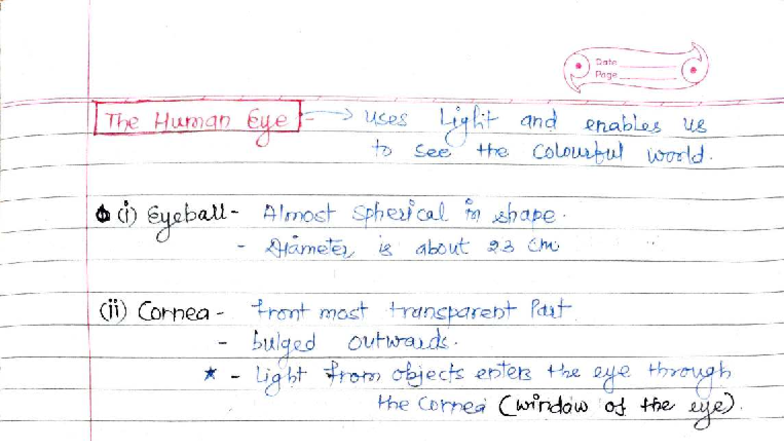 Date
Page
The Human Eye - → uses Light and enables us
to see the colourful world.
(i) Eyeball - Almost spherical in shape.
- Diameter is about 23 cm
(ii) Cornea - front most transparent Part
- bulged outwards.
* - Light from objects enters the eye through
the Cornea (window of the eye).